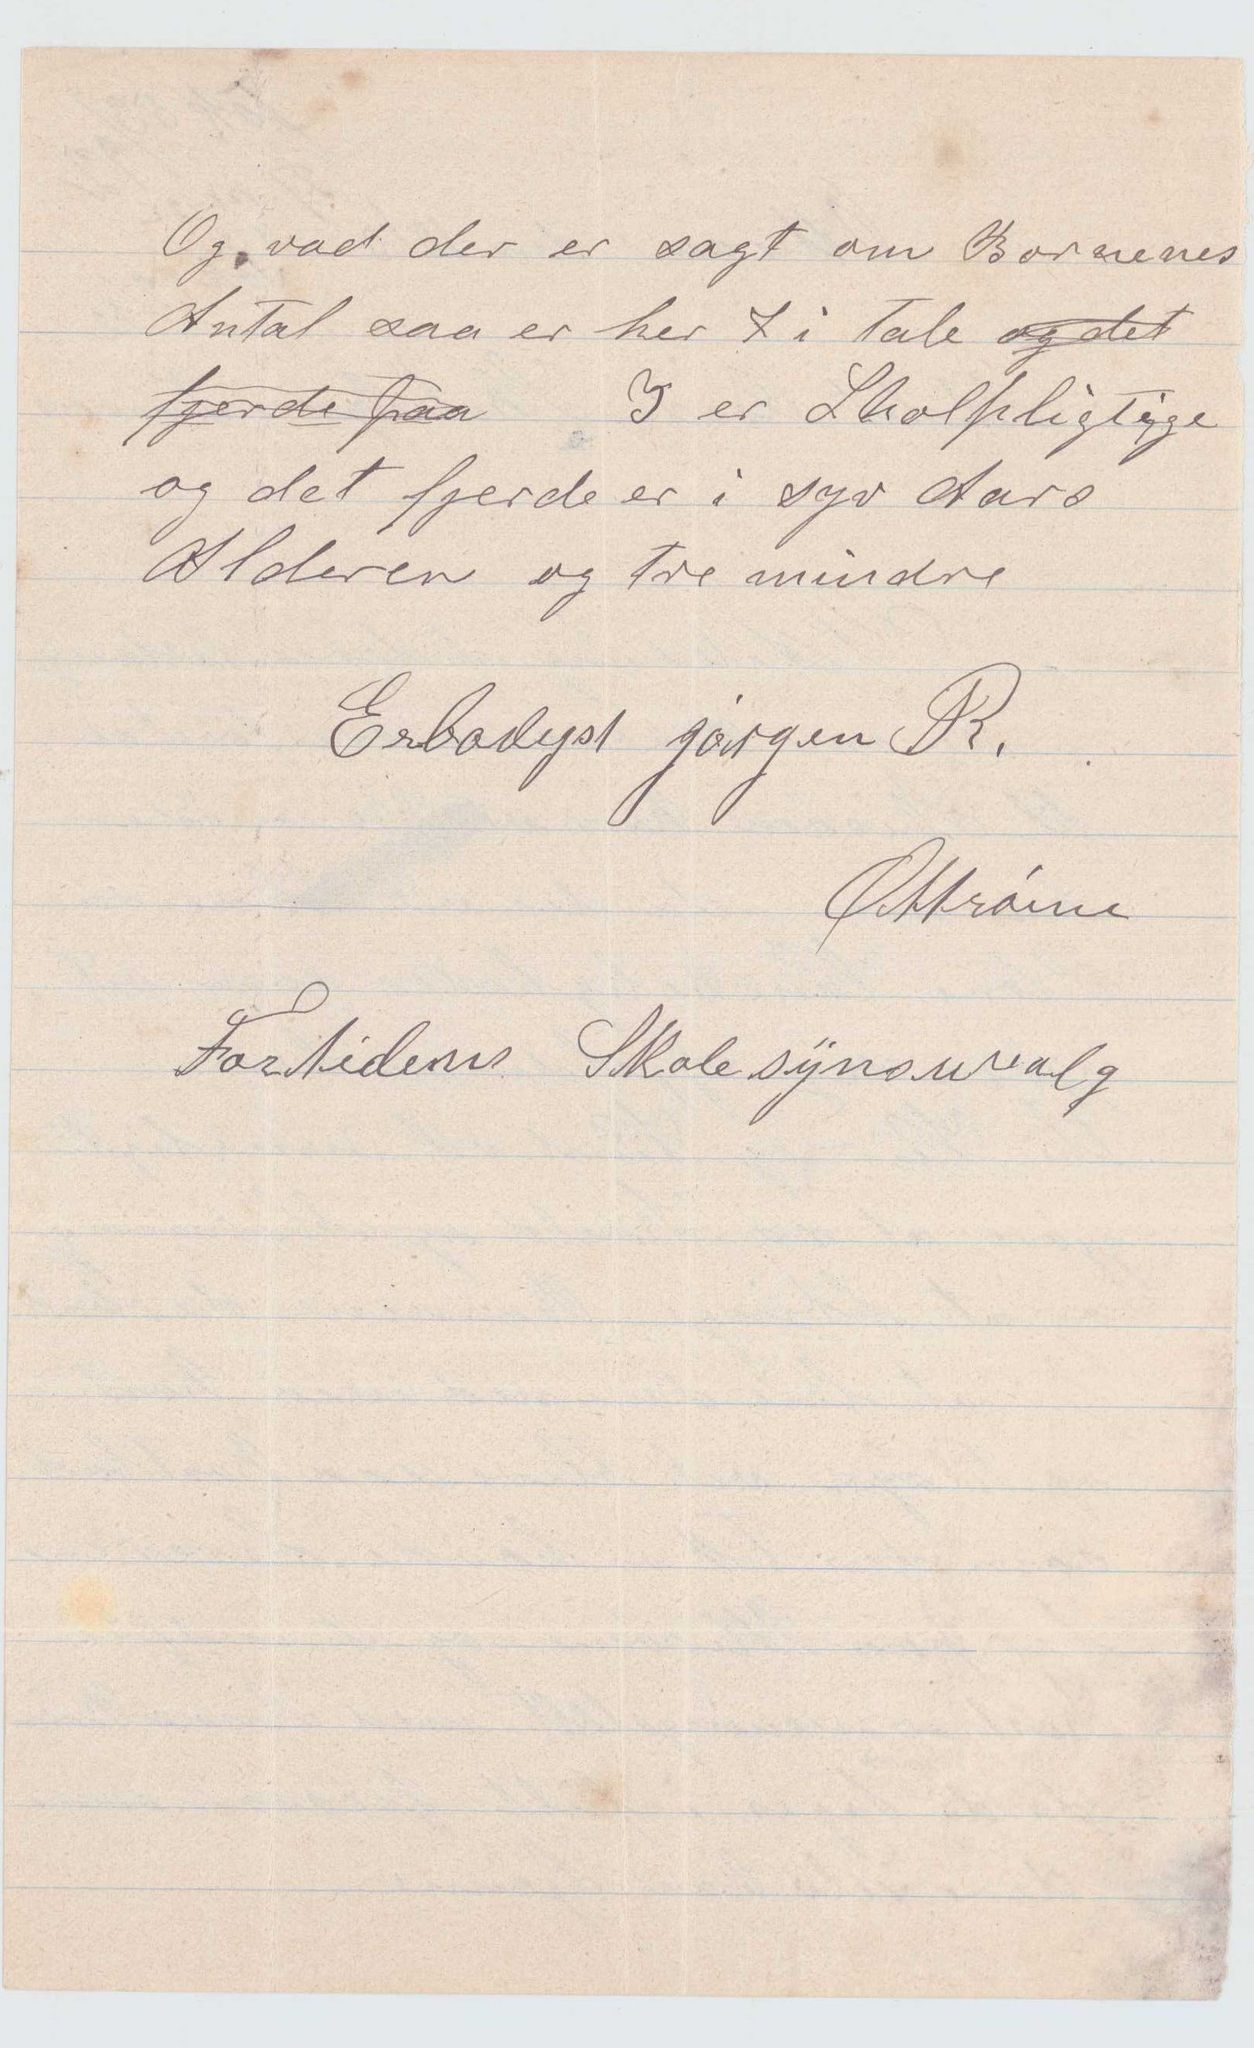 Og, vad der er sagt om Bornenes
Antal saa er her 7 i tale og det
fjerde paa 3 er Skolpligtige
og det fjerde er i syv Aars
Alderen og tre mindre
Erbadyst jörgen R.
Ottröine
Fortidens Skolesÿnsuvalg